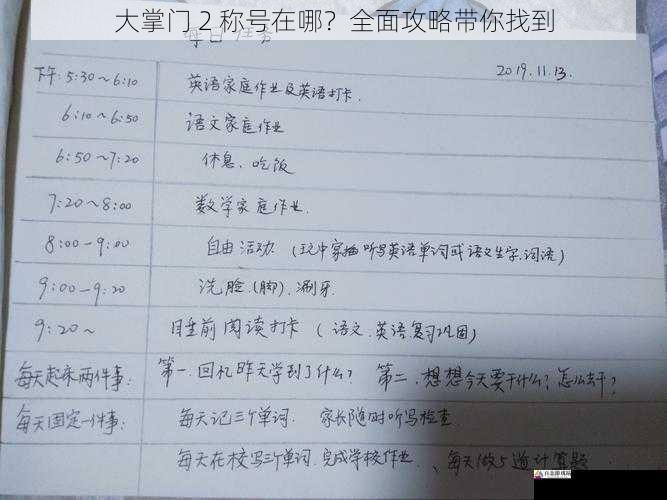 大掌门 2 称号在哪？全面攻略带你找到
每日任务
2019.11.13.
下午: 5:30~6:10 英语家庭作业及英语打卡.
6:10~6:50 语文家庭作业
6:50~7:20 休息、吃饭
7:20~8:00 数学家庭作业.
8:00-9:00 自由活动 (玩中穿插听写英语单词或语文生字.词语)
9:00-9:20 洗脸.(脚).涮牙.
9:20~ 睡前阅读打卡 (语文.英语复习巩固)
每天起床两件事: 第一.回忆昨天学到了什么? 第二.想想今天要干什么? 怎么去干?
每天固定一件事: 每天记三个单词. 家长随时听写检查.
每天在校写三个单词.完成学校作业、每天做5道计算题